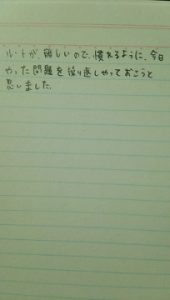 ルートが難しいので、慣れるように、今日
やった問題を繰り返しやっておこうと
思いました。